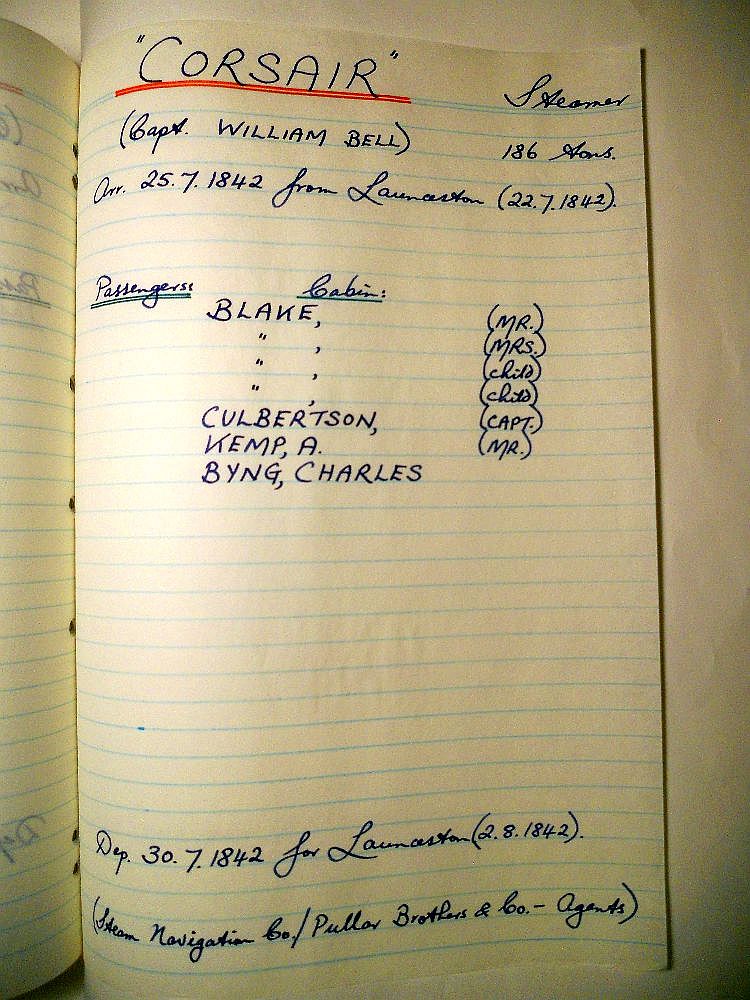 "CORSAIR"
Steamer
(Capt. WILLIAM BELL)
186 tons.
Arr. 25.7.1842 from Launceston (22.7.1842).
Passengers: Cabin:
BLAKE, (MR.)
" , (MRS.)
" , (child)
" , (child)
CULBERTSON, (CAPT.)
KEMP, A. (MR.)
BYNG, CHARLES
Dep. 30.7.1842 for Launceston (2.8.1842).
(Steam Navigation Co./Pullar Brothers & Co. - Agents)